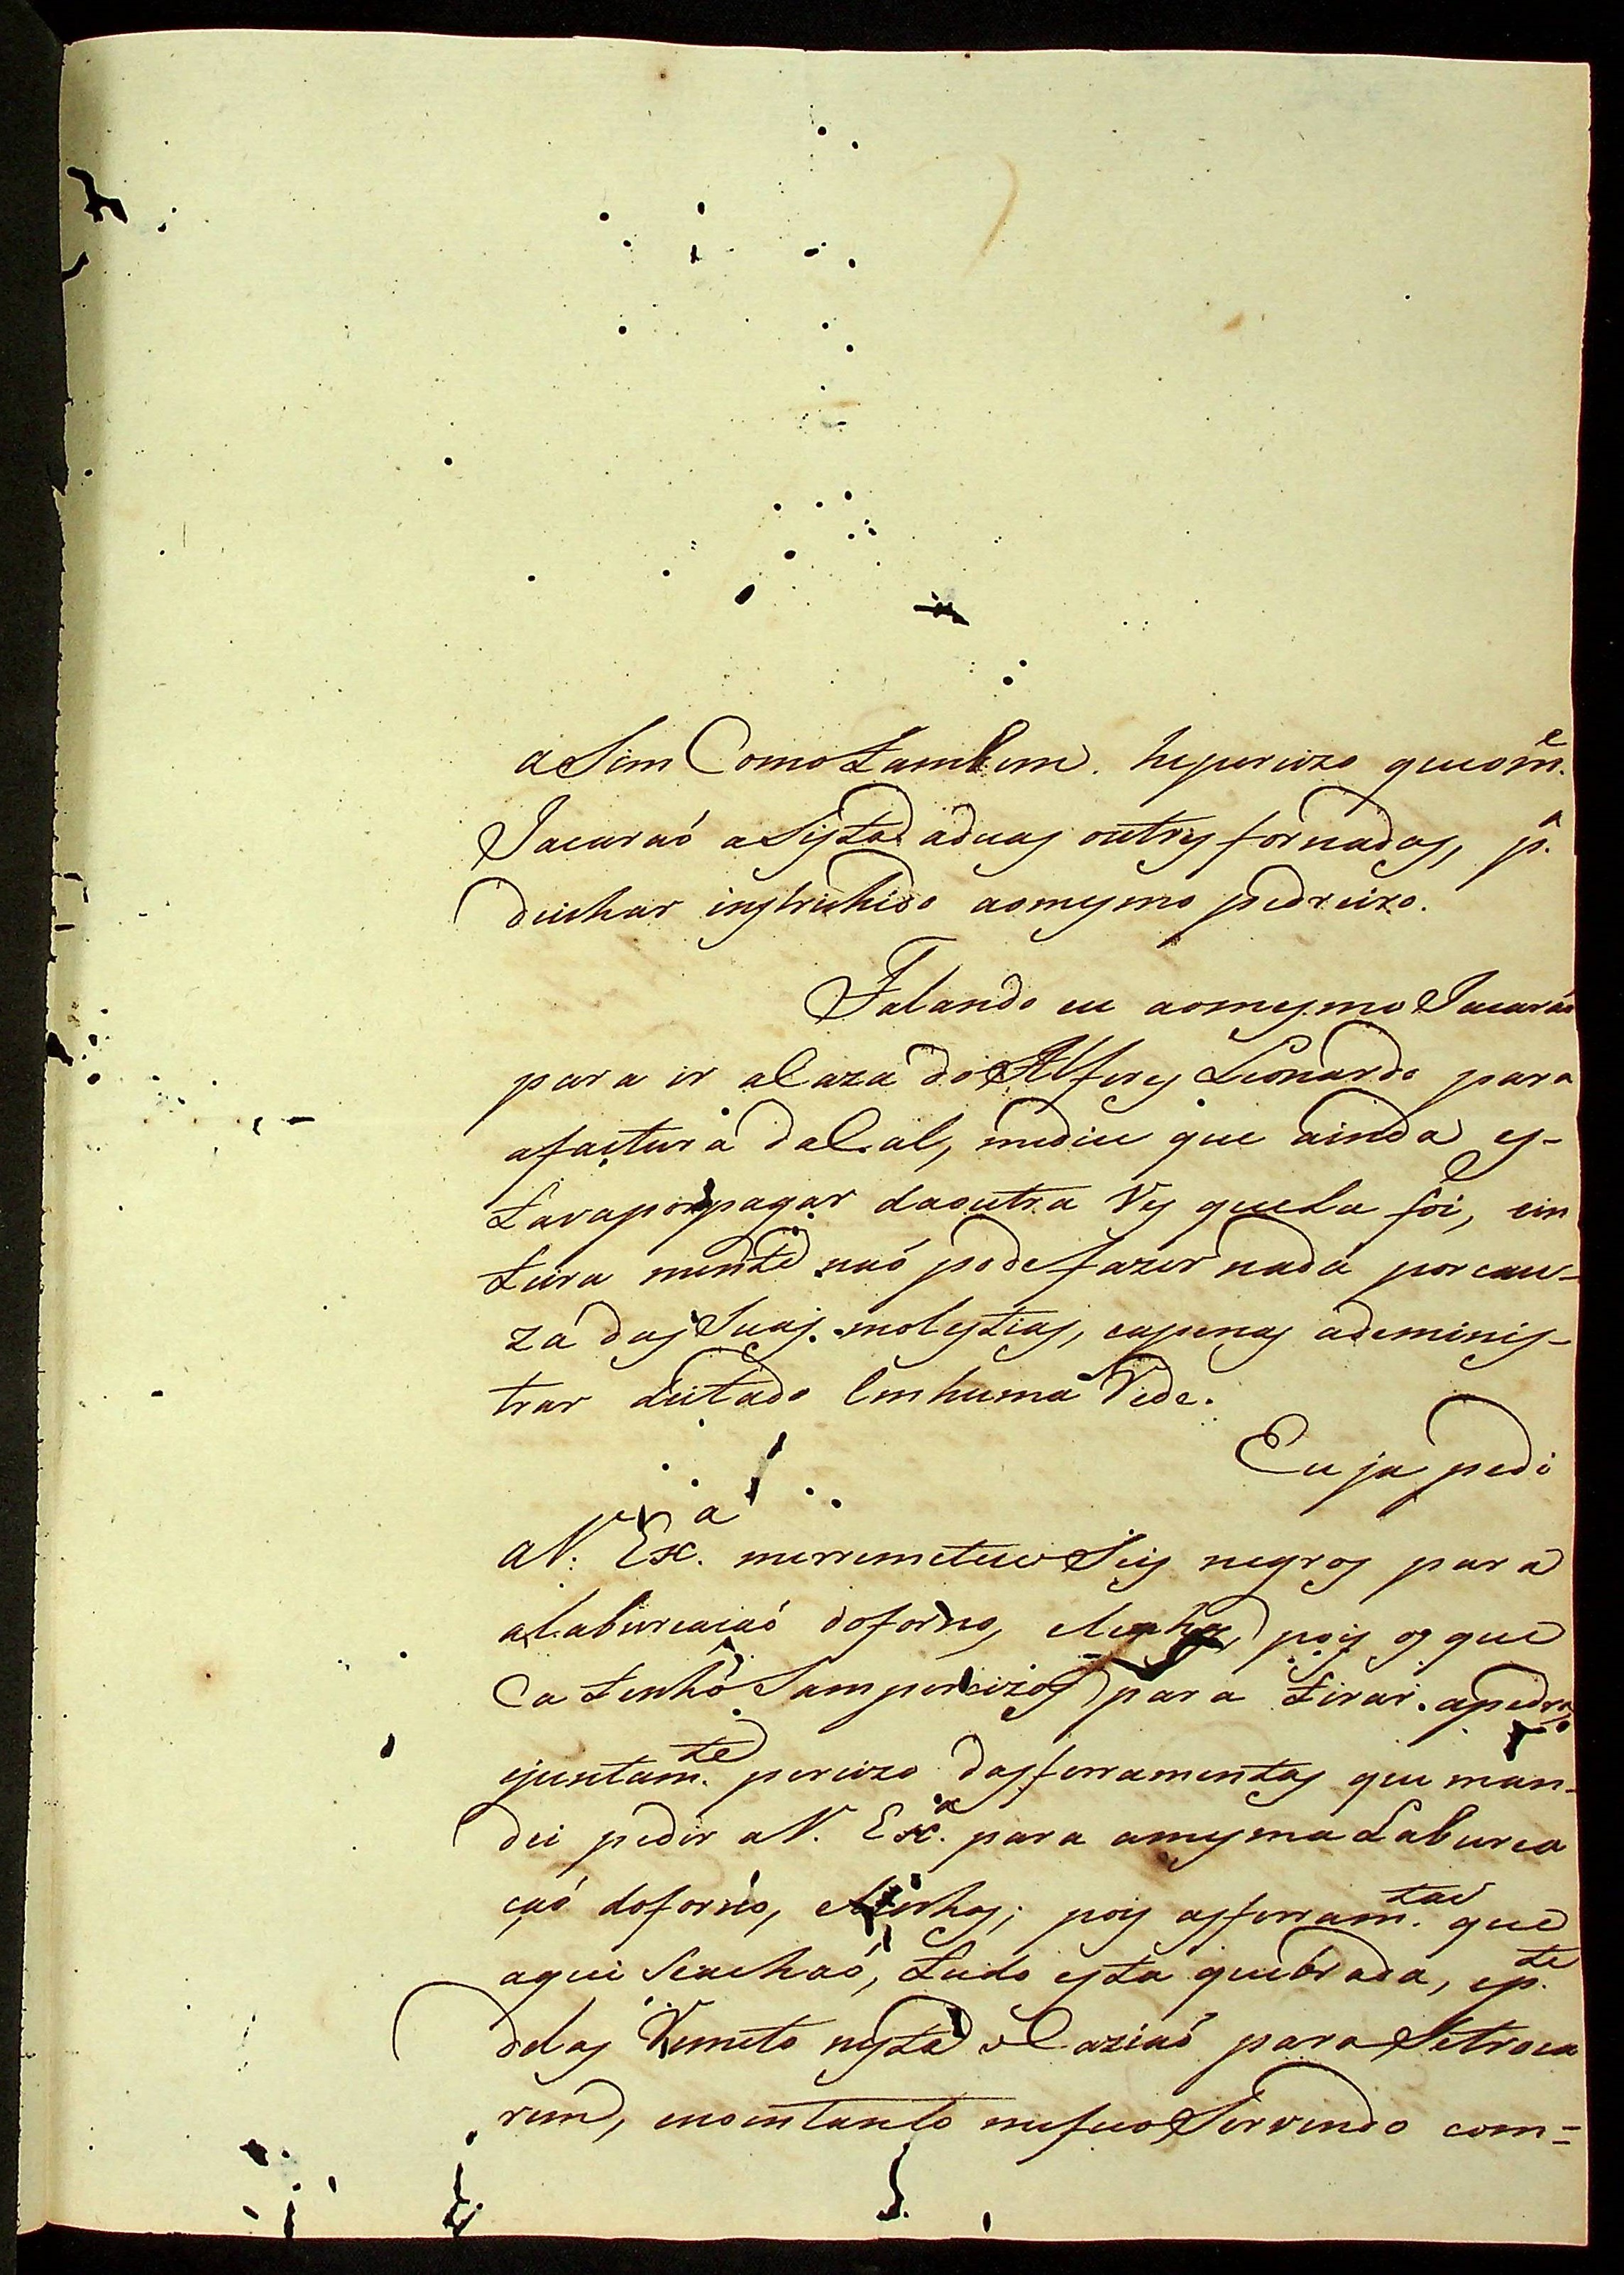 aSim Como tambem. heperсizo queom.e
Jacaraó aSista aduas outras fornadas, p.a
deichar instruhido aomesmo pedreizo.
Falando eu aomesmo Jacaraó
para ir aCaza do Alferes Leonardo para
afactura daCal, mediu que ainda es-
tavaporpagar daoutra Ves queLa foi, ein
teira mente naó podefazer nada porcau-
za dasSuas molestias, eapenas ademinis-
trar deitado Emhuma Rede.
Eu ja pedi
aV. Ex.a merremeteceSeis negros para
aLaburacaó doforno, eLenha, pois os que
Ca tenho Samperсizos para tirar. apedra,
ejuntam.te percizo dasferramentas que man-
dei pedir aV. Ex.a para amesma Labura
çaó doforno, eLenhas; pois asferram.tas que
aqui Seachaó, tudo esta quebrada, ep.te
delas Remeto nesta oCaziaó para Setroca
rem, enoentanto mefico Servindo com=